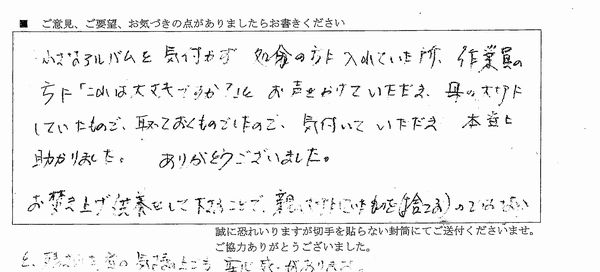 ■ ご意見、ご要望、お気づきの点がありましたらお書きください
小さなアルバムを気付かず 処分の方に入れていた所、作業員の
方に「これは大丈夫ですか?」と お声をかけていただき、母が大切に
していたもので、取っておくものでしたので、気付いていただき 本当に
助かりました。 ありがとうございました。
お焚き上げ供養をして下さることで、親が大切にしていたものを(捨てる)のではない
誠に恐れいりますが切手を貼らない封筒にてご送付くださいませ。
ご協力ありがとうございました。
と、 気持の上でも